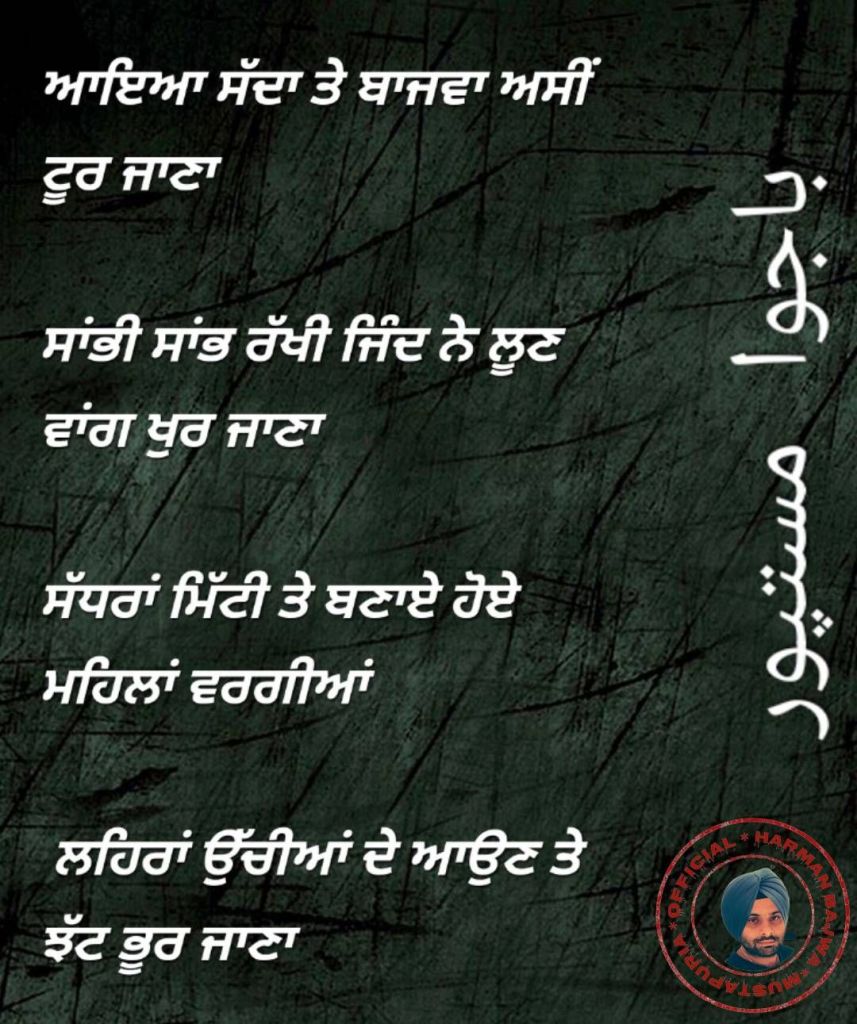 ਆਇਆ ਸੱਦਾ ਤੇ ਬਾਜਵਾ ਅਸੀਂ
ਟੂਰ ਜਾਣਾ
ਸਾਂਭੀ ਸਾਂਭ ਰੱਖੀ ਜਿੰਦ ਨੇ ਲੂਣ
ਵਾਂਗ ਖੁਰ ਜਾਣਾ
ਸੱਧਰਾਂ ਮਿੱਟੀ ਤੇ ਬਣਾਏ ਹੋਏ
ਮਹਿਲਾਂ ਵਰਗੀਆਂ
ਲਹਿਰਾਂ ਉੱਚੀਆਂ ਦੇ ਆਉਣ ਤੇ
ਝੱਟ ਭੂਰ ਜਾਣਾ
باجوا مستپور
OFFICIAL * HARMAN BAJWA * MUSTAPURIA *